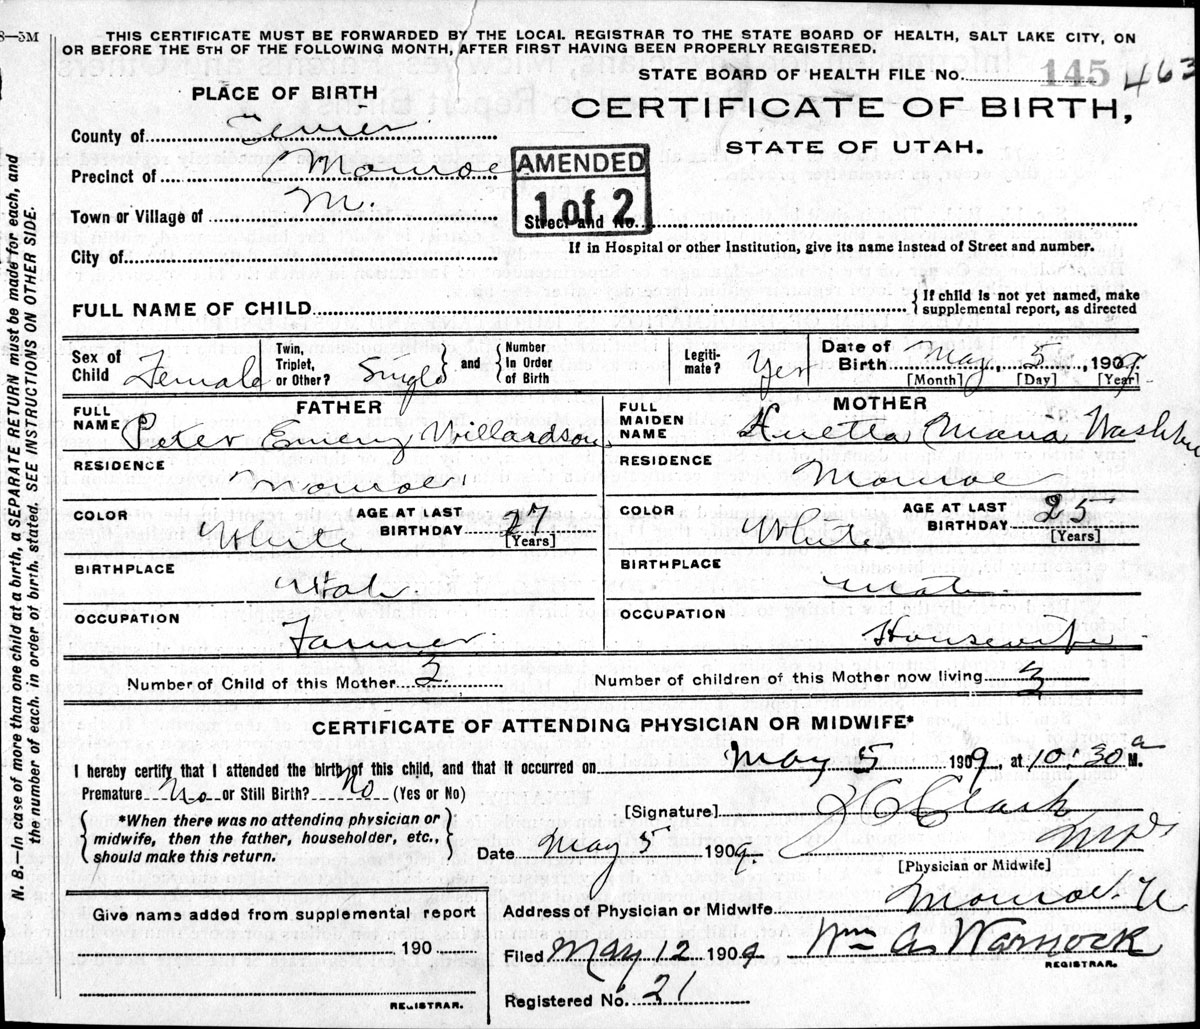 8—5M
THIS CERTIFICATE MUST BE FORWARDED BY THE LOCAL REGISTRAR TO THE STATE BOARD OF HEALTH, SALT LAKE CITY, ON
OR BEFORE THE 5TH OF THE FOLLOWING MONTH, AFTER FIRST HAVING BEEN PROPERLY REGISTERED.
STATE BOARD OF HEALTH FILE No. 145 463
PLACE OF BIRTH
CERTIFICATE OF BIRTH,
STATE OF UTAH.
County of Sevier
Precinct of Monroe
Town or Village of M.
AMENDED
1 of 2
Street and No.
City of
If in Hospital or other Institution, give its name instead of Street and number.
FULL NAME OF CHILD
{ If child is not yet named, make
supplemental report, as directed
Sex of Child Female
Twin, Triplet, or Other? Single } and { Number In Order of Birth
Legitimate? Yes
Date of Birth May 5, 1909
[Month] [Day] [Year]
FATHER
FULL NAME Peter Emery Willardson
RESIDENCE Monroe
COLOR White
AGE AT LAST BIRTHDAY 27 [Years]
BIRTHPLACE Utah
OCCUPATION Farmer
MOTHER
FULL MAIDEN NAME Maria
RESIDENCE Monroe
COLOR White
AGE AT LAST BIRTHDAY 25 [Years]
BIRTHPLACE Utah
OCCUPATION Housewife
Number of Child of this Mother 3
Number of children of this Mother now living 3
CERTIFICATE OF ATTENDING PHYSICIAN OR MIDWIFE*
I hereby certify that I attended the birth of this child, and that it occurred on May 5 1909, at 10:30 a M.
Premature No or Still Birth? No (Yes or No)
[Signature] Clark
MD
{ *When there was no attending physician or
midwife, then the father, householder, etc.,
should make this return. }
Date May 5 1909.
[Physician or Midwife]
Give name added from supplemental report
190
REGISTRAR.
Address of Physician or Midwife Monroe U
Filed May 12 1909 Wm A. Warnock
REGISTRAR.
Registered No. 21
N. B.—In case of more than one child at a birth, a SEPARATE RETURN must be made for each, and
the number of each. in order of birth. stated. SEE INSTRUCTIONS ON OTHER SIDE.